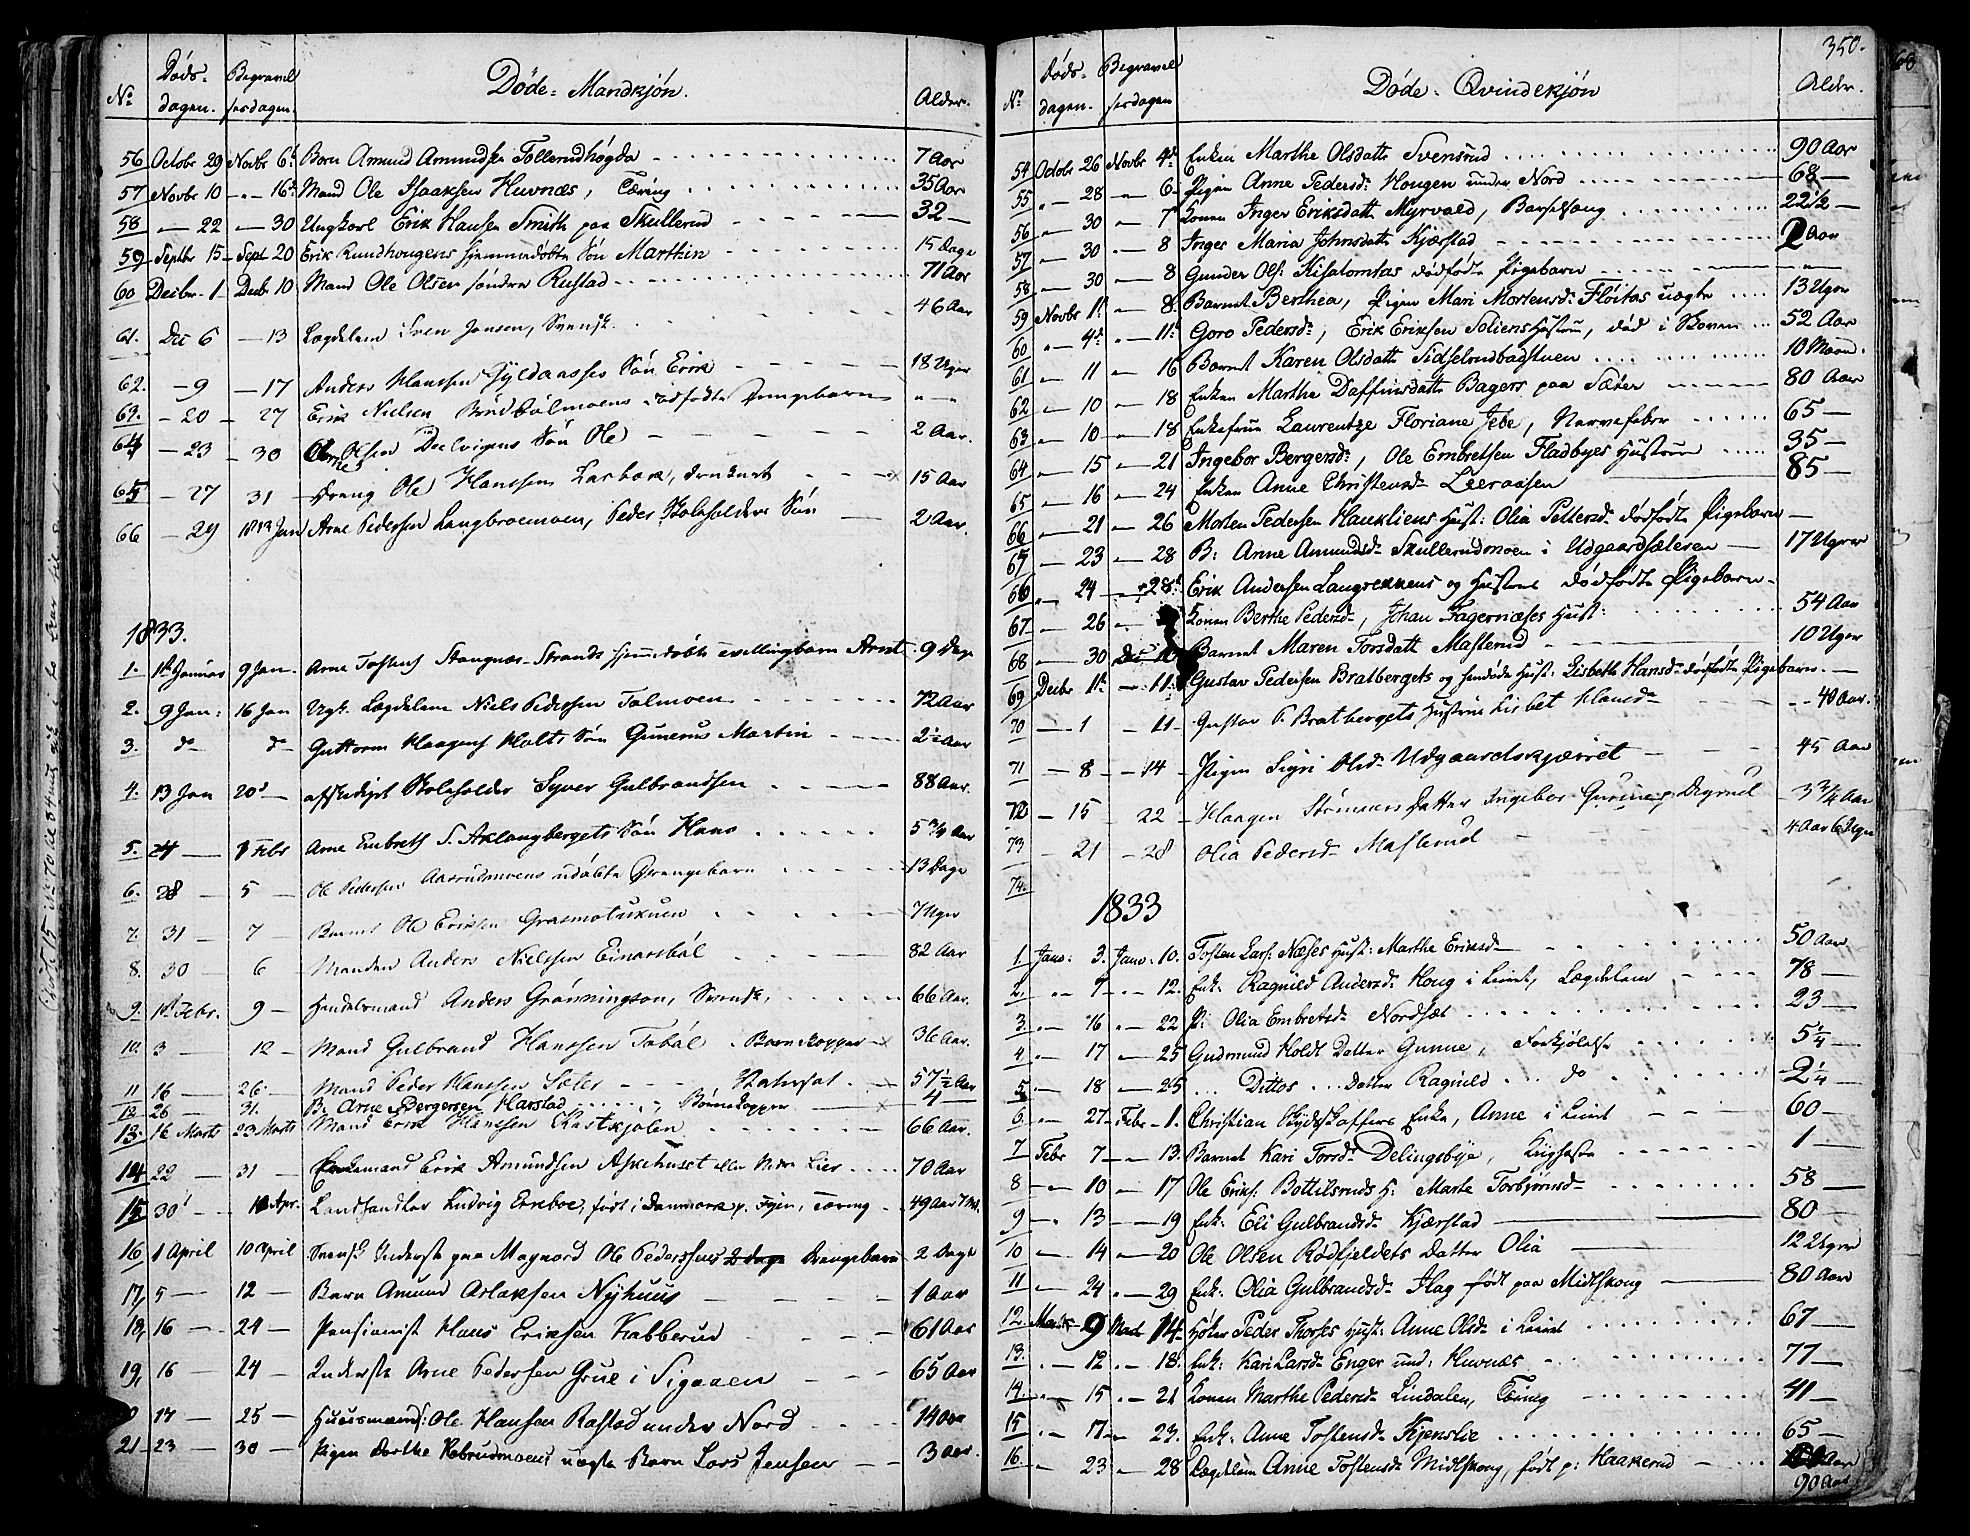 Døde: Mandkjøn.
No Døds-dagen. Begravelsesdagen. Alder.
56 Octobr 29 Novbr 6t Barn Amund Amundsen Tollerudhøgda 7 Aar
57 Novbr 10 - " - 16d Mand Ole Isaaksen Huvnæs, Tæring 35 Aar
58 - 22 - 30 Ungkarl Erik Hansen Smith paa Skullerud 32 -
59 Septbr 15 - Sept 20 Erik Rundhougens hjemmedøbte Søn Marthin 15 Dage
60 Decbr. 1 Decbr 10 Mand Ole Olsen søndre Rustad 71 Aar
61. Dec 6 - 13 Lægdslem Sven Jansen, Svensk. 46 Aar
62. - 9 - 17 Anders Hanssen Gyldaasses Søn Erik 18 Uger
63. - 20 - 27 Erik Nielsen Brødbølmoens dødfødte Drengebarn " "
64 - 23 - 30 Olsen Deelvigens Søn Ole 2 Aar.
65 - 27 31 Dreng Ole Hanssen Larbak, druknet 15 Aar
66 - 29 13 Jan Arne Pedersen Langbroemoen, Peder Skoleholders Søn 2 Aar.
1833.
1. 1st Januar 9 Jan. Arne Tostens Stangnæs-Strands hjemmedøbte tvillingbarn Arnt 9 Dage
2. 9 Jan: 16 Jan Ugk. Lægdslem Niels Pedersen Talmoen 72 Aar
3. do do Guttorm Haagens Holts Søn Gunerus Martin 2½ Aar
4. 13 Jan 20d - afskediget Skoleholder Syver Gulbrandsen 88 Aar.
5. 24 - 1 Febr Arne Embreth S. Aklangbergets Søn Hans 5 ¾ Aar
6. 28 - 5 - Ole Pedersen Aasrudmoens udøbte Drengebarn 13 Dage
7. 31 - 7 - Barnet Ole Eriksen Grasmotukuen 7 Uger
8. 30 - 6 - Manden Anders Nielsen Einarsbøl 82 Aar
9. 1st Febr. 9 - Handelsmand Anders Grønningson, Svensk, 66 Aar.
10. 3 - 12 - Mand Gulbrand Hanssen Tabøl - Børnekopper 36 Aar.
11 16 - 26. - Mand Peder Hanssen Sæter 57½ Aar
12 26 - 31. B. Arne Bergersen Harstad, Børnekopper 4 -
13. 16 Marts 23 Marts Mand Erik Hanssen Kastkjølen 66 Aar.
14 22 - 31 - Enkemand Erik Amundsen Askehuset eller Nedre Lier 70 Aar
15 30t - 10 Apr. Landhandler Ludvig Erreboe, født i Danmark p. Fyen, Tæring 49 Aar 7 Md.
16 1 April 10 April Svensk Inderste paa Magnord Ole Pederssens 2 Dage Drengebarn 2 Dage
17, 5 - 12 - Barn Amund Aslaksen Nyhuus 1 Aar
18, 16 - 24 - Pensionist Hans Eriksen Kabberud 61 Aar
19, 16 - 24 - Inderste Arne Pedersen Grue i Sigaaen 65 Aar
17 - 25 - Huusmand: Ole Hansen Rastad under Nord 14 Aar
21 - 23 - 30 - Pigen Dorthe Kabrudmoens uægte Barn Lars Jensen 3 Aar.
350.
Døde: Qvindekjøn
No Døds-dagen. Begravelsesdagen Alder.
54 Octobr 26 Novbr 4de Enken Marthe Olsdatt Svensrud 90 Aar
55 " - 28 - " 6 - Pigen Anne Pedersd. Hougen under Nord 68 -
56 " - 30 - " 7 Konen Inger Eriksdatt Myrvold, Barselsang 22½ -
57 " - 30 - 8 Inger Maria Johnsdatt Kjærstad 2 Aar
58 - 30 - 8 Gunder Ols: Kisalomtas dødfødte Pigebarn
59 Novbr 1t - 8. Barnet Berthea, Pigen Mari Mortensd. Fløitas uægte 13 Uger
60 " - 4d " - 11t Goro Pedersd:, Erik Eriksen Soliens Hustru, død i Skoven 52 Aar
61 - 11 " - 16 Barnet Karen Olsdatt Sidselrudbadstuen 10 Maan:
62 - 10 - 18 Enken Marthe Daffinsdatt Bagers paa Sæter 80 Aar
63 - 10 - 18 Enkefrue Laurentze Floriane Jebe, Nervefeber 65 -
64 - 15 - 21 Ingebor Bergersd:, Ole Embretsen Fladbyes Hustrue 35 -
65 - 16 - 24 Enken Anne Christensd. Leeraasen 85 -
66 - 21 - 26 Morten Pedersen Haukliens Hust: Olia Pettersd. dødfødte Pigebarn -
65 - 23 - 28 B: Anne Amundsd. Skullerudmoen i Udgaardsæteren 17 Uger
66 " - 24 - 28d Erik Andersen Langrekkens og Hustrues dødfødte Pigebarn -
67 - 26 - Konen Berthe Pedersd., Johan Fagernæses Hust: 54 Aar
68 - 30 Dec Barnet Maren Torsdatt Masterud 10 Uger
69 Decbr 1t - 11. Gustav Pedersen Bratbergets og hendøde Hust: Lisbeth Hansd. dødfødte Pigebarn. -
70 - 1 - 11 - Gustav P. Bratbergets Hustrue Lisbet Hansd. 40 Aar.
71 - 8 - 14 - Pigen Sigri Olsd. Udgaardskjærret 45 Aar
72 - 15 - 22 - Haagen Strømnæs Datter Ingebor Gurine p. Degrud 3 ¾ Aar
73 - 21 - 28 Olia Pedersd. Masterud 4 Aar 6 Uger
74.
1833
1 Janv: 3. Janv. 10. Tosten Lars: Næses Hust: Marthe Eriksd. 50 Aar
2. " - 7 " - 12. Enk: Ragnild Andersd. Houg i Eiust, Lægdslem 78 -
3. " - 16 " - 22 P: Olia Embretsd. Nordsæt 23 -
4 " - 17 - 25 Gudmund Holdt Datter Gunne, Forkjølelse 5¼ -
5 - 18 - 25 Dittos ... Datter Ragnild ... do 2¼ -
6 " - 27 - Febr - 1. Christian Skydskaffers Enke, Anne i Eiust 60 -
7 Febr 7 - " - 13. Barnet Kari Torsd. Delingsbye, Kighoste 1 -
8 - " - 10 " - 17 Ole Eriks: Bottilsruds H: Marte Torbjørnsd. 58 -
9 - " 13 - - 19 Enk: Eli Gulbrandsd. Kjærstad 80 -
10 " - 14 " - 20 Ole Olsen Rødfjeldets Datter Olia 12 Uger
11 " - 24 " - 29 Enk: Olia Gulbrandsd. Flag født paa Midtskoug 80 Aar
12. Marts 9 Mad 14 - Peder Thorses Hust: Anne Olsd. i Eiust 67 -
13. " - 12 " - 18. Enk: Kari Larsd. Enger und: Huvnæs 77 -
14. " - 15 " - 21 Konen Marthe Pedersd. Lindalen, Tæring 41 -
15 " - 17 " - 23. Enk: Anne Tostensd. Kjenslie 65 -
16. " - 23 - 28 Lægdslem Anne Tostensd. Midtskoug, født p: Haakerud Aar
90 Aar